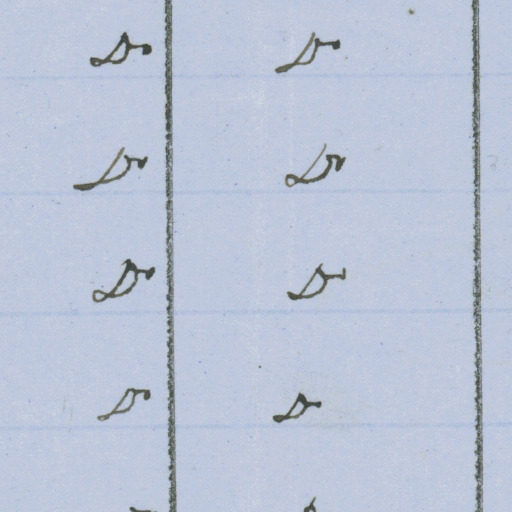 Do Do
Do Do
Do Do
Do Do